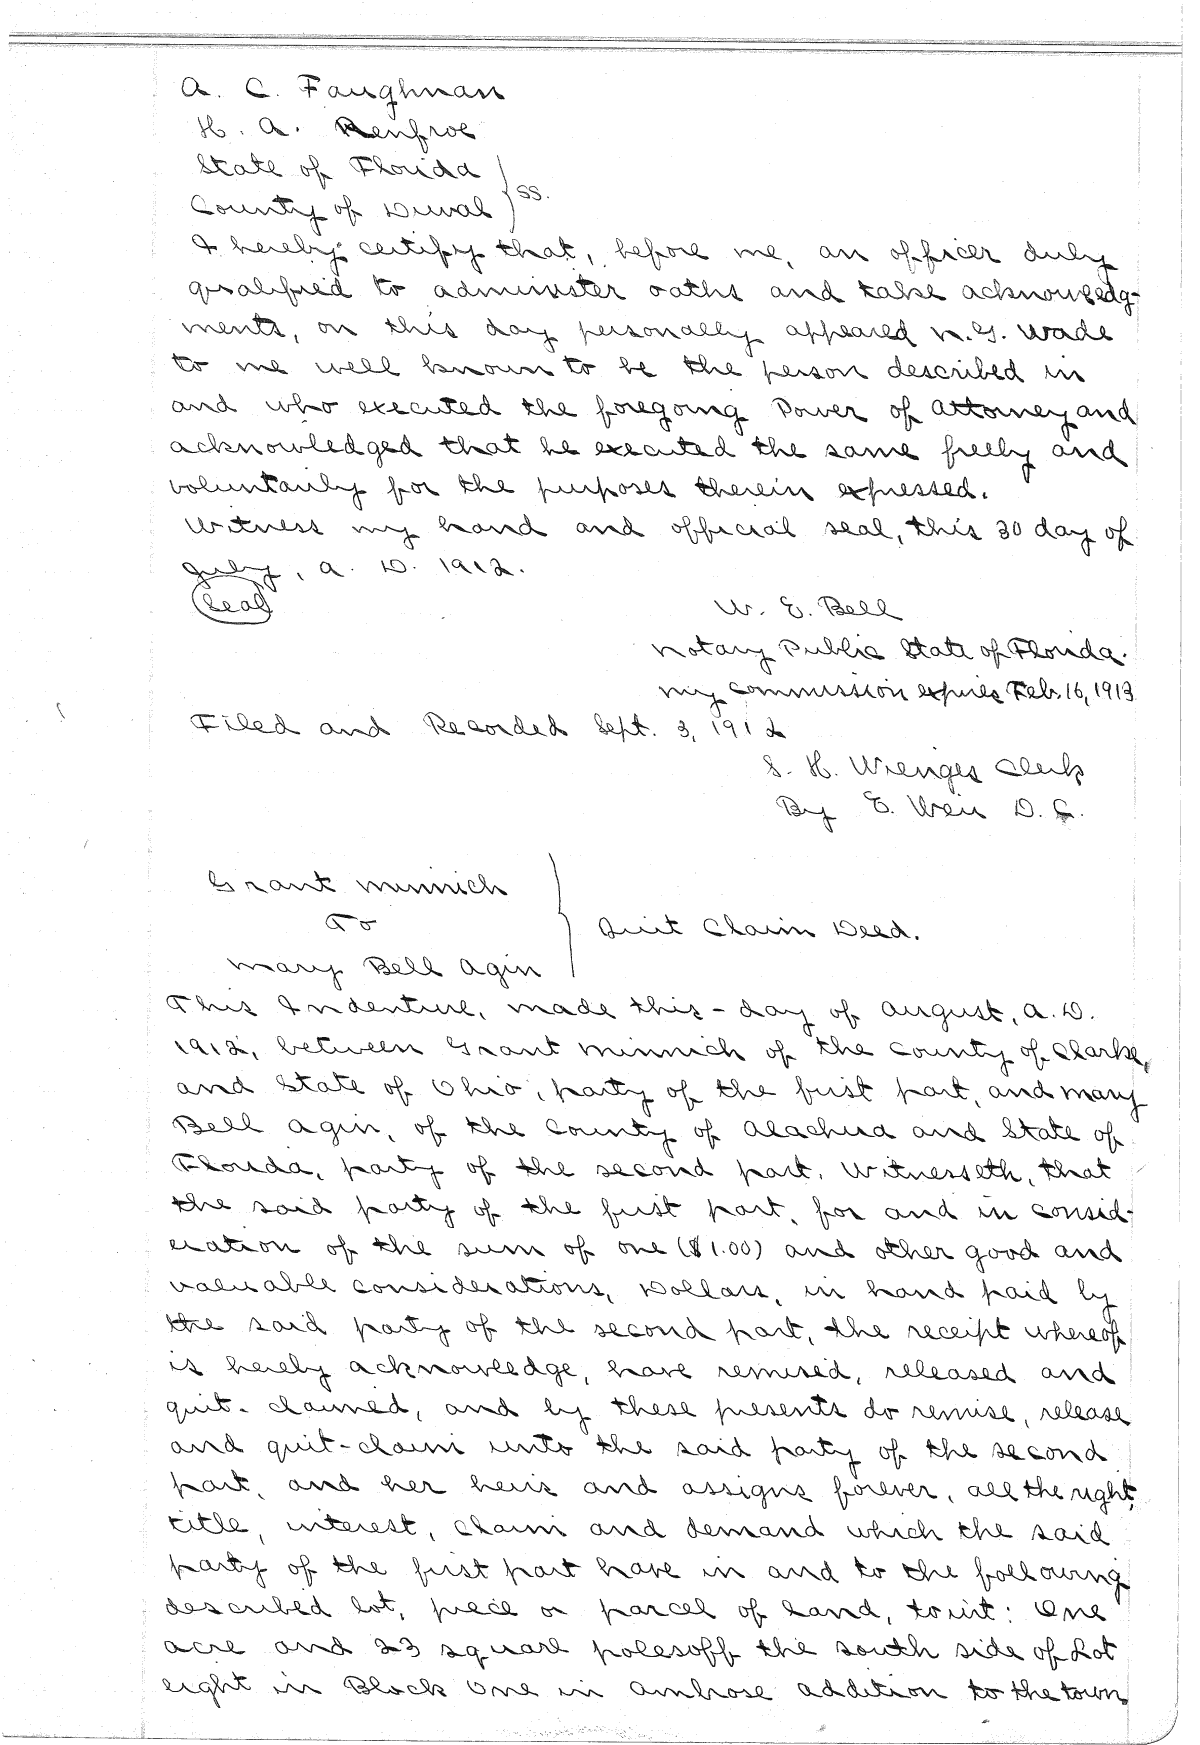 A. C. Faughnan
H. A. Renfroe
State of Florida
County of Duval } SS.
I hereby certify that, before me, an officer duly
qualified to administer oaths and take acknowledg-
ments, on this day personally appeared N. G. Wade
to me well known to be the person described in
and who executed the foregoing Power of Attorney and
acknowledged that he executed the same freely and
voluntarily for the purposes therein expressed.
Witness my hand and official seal, this 30 day of
July, A. D. 1912.
(Seal)
W. E. Bell
Notary Public State of Florida.
My commission expires Feb. 16, 1913
Filed and Recorded Sept. 3, 1912
S. H. Wienges Clerk
By E. Weir D. C.
Grant Minnich
To
Quit Claim Deed.
Mary Bell Agin
This Indenture, made this - day of August, A. D.
1912, between Grant Minnich of the County of Clarke,
and State of Ohio, party of the first part, and Mary
Bell Agin, of the County of Alachua and State of
Florida, party of the second part, Witnesseth, that
the said party of the first part, for and in consid-
eration of the sum of one ($1.00) and other good and
valuable considerations, Dollars, in hand paid by
the said party of the second part, the receipt whereof
is hereby acknowledge, have remised, released and
quit-claimed, and by these presents do remise, release
and quit-claim unto the said party of the second
part, and her heirs and assigns forever, all the right,
title, interest, claim and demand which the said
party of the first part have in and to the following
described lot, piece or parcel of land, towit: One
acre and 23 square poles off the south side of Lot
eight in Block One in Ambrose addition to the town